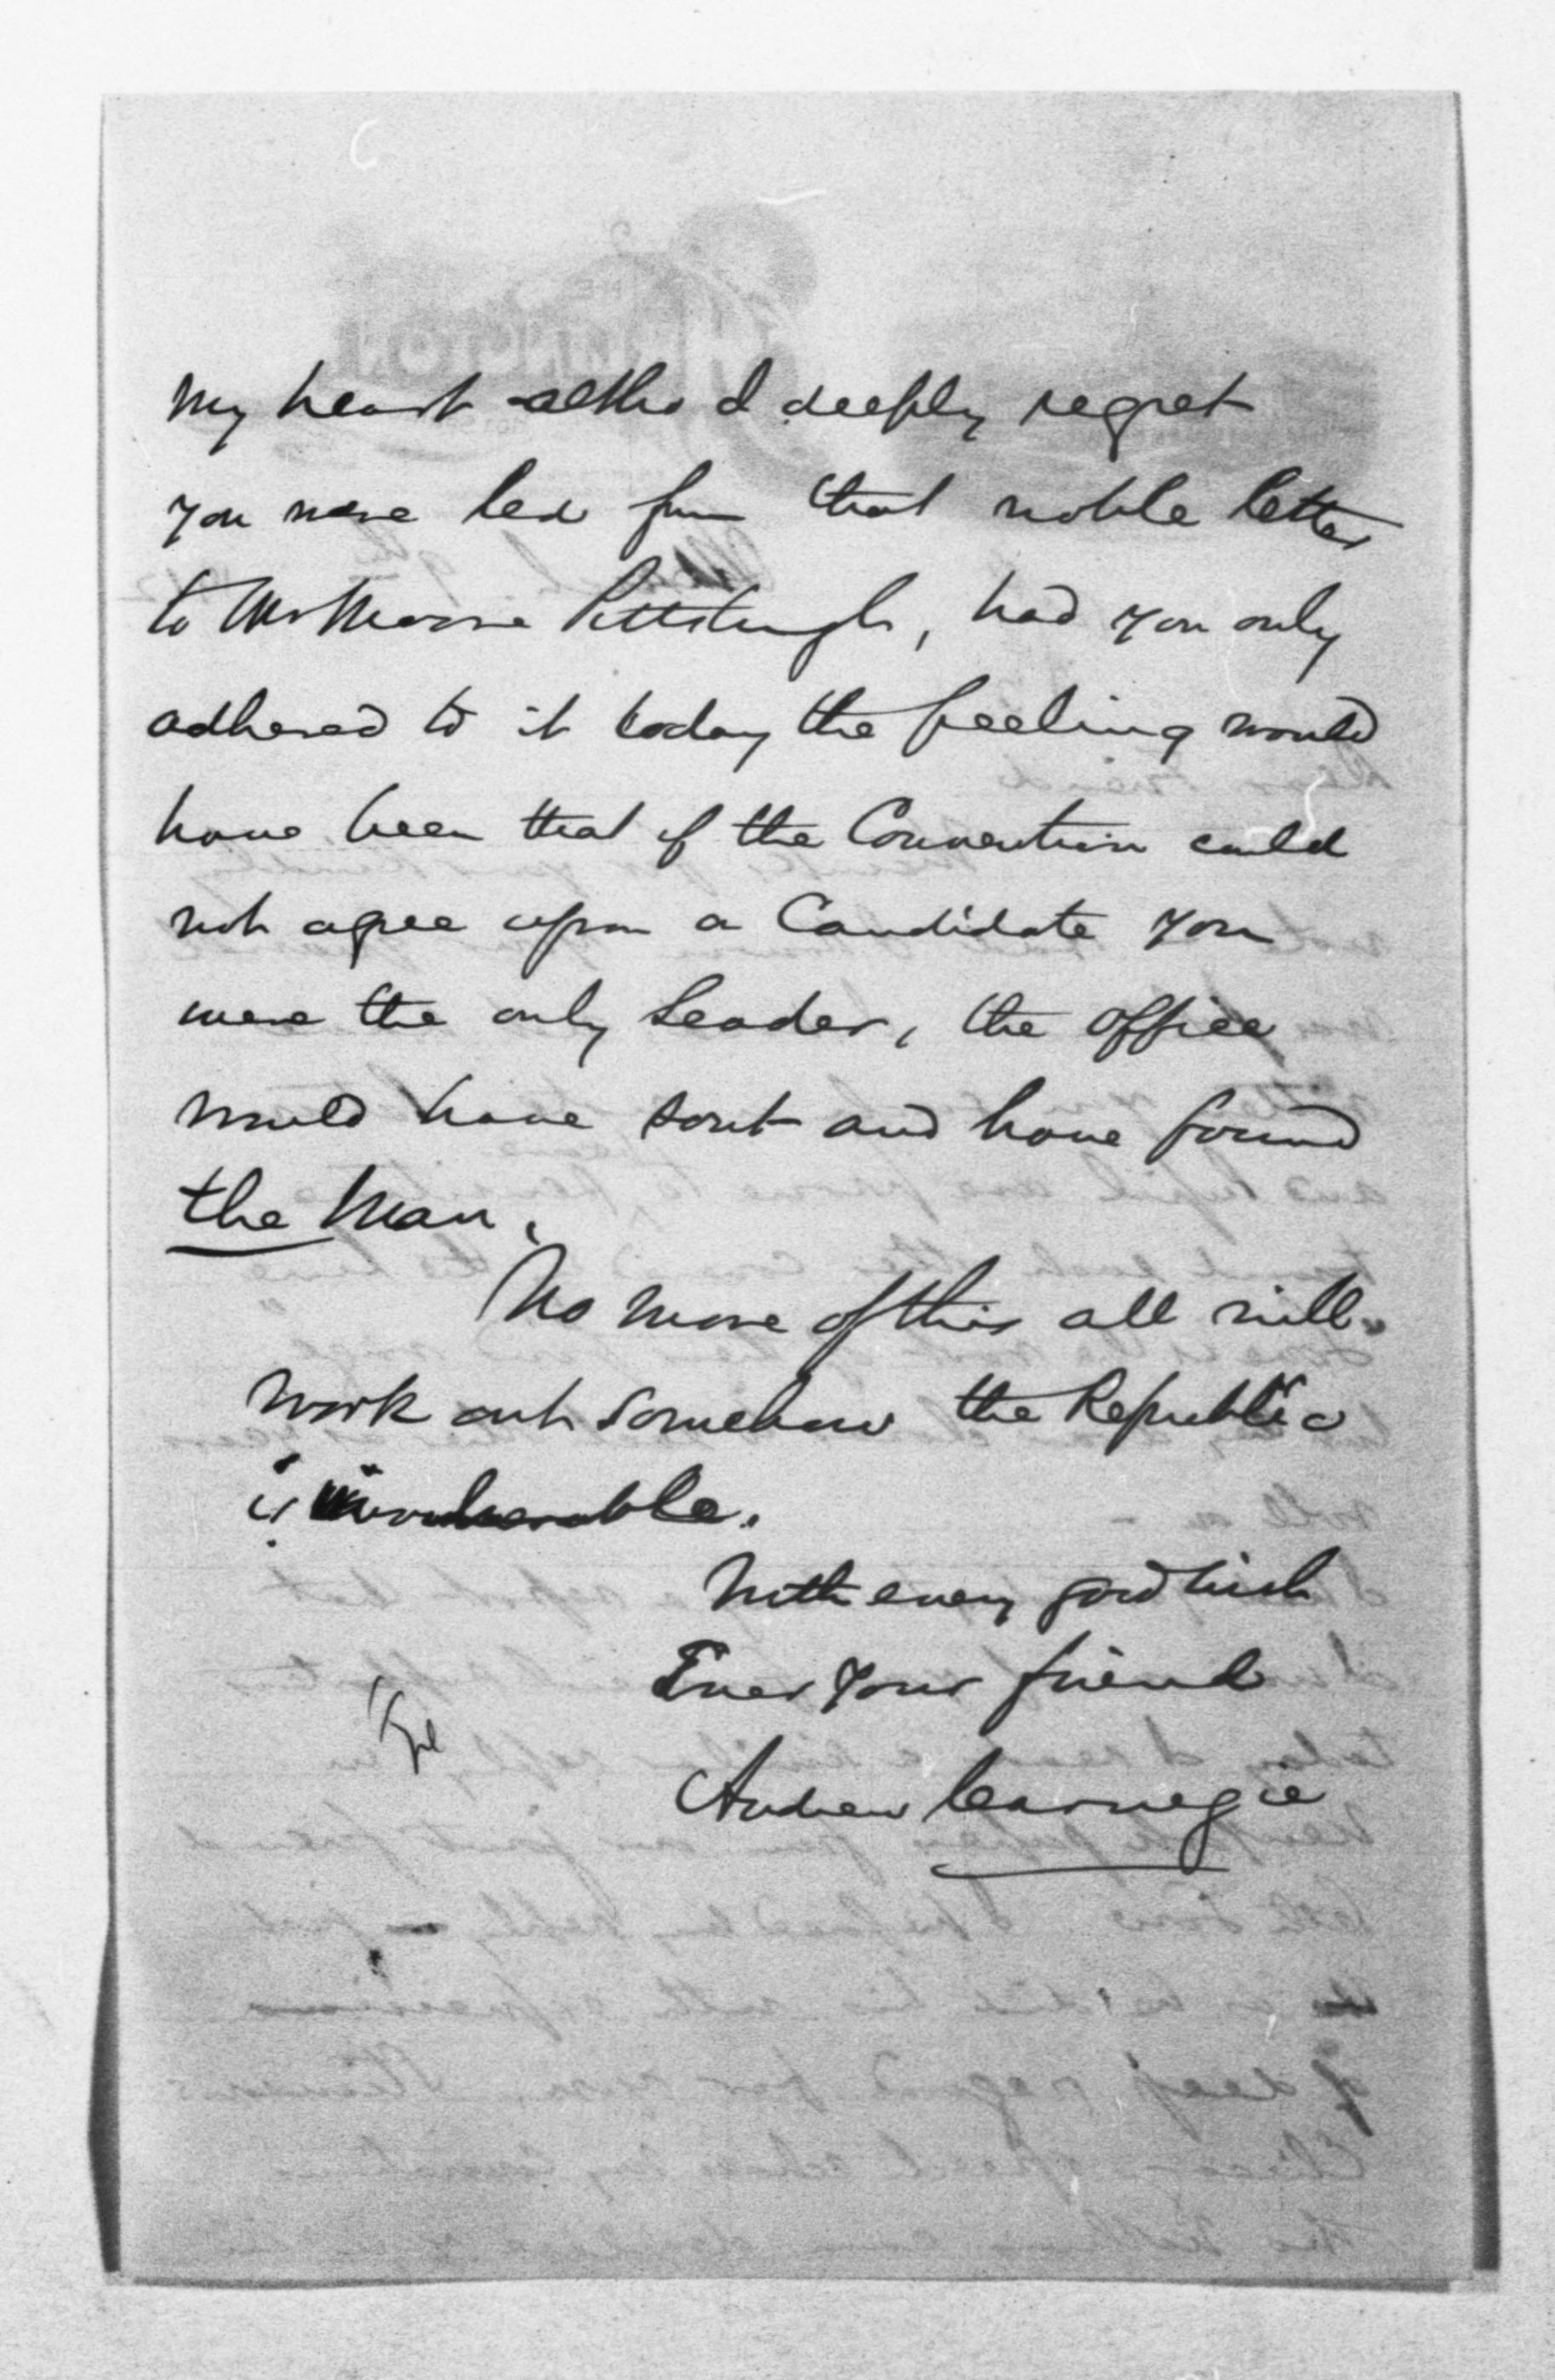 my heart altho I deeply regret
you were led from that noble letter
to Mr Moore Pittsburgh, had you only
adhered to it today the feeling would
have been that if the Convention could
not agree upon a Candidate you
were the only Leader, the office
would have sout and have found
the Man.
No more of this all will
work out somehow the Republic
is invulnerable.
With every good wish
Ever your friend
Andrew Carnegie